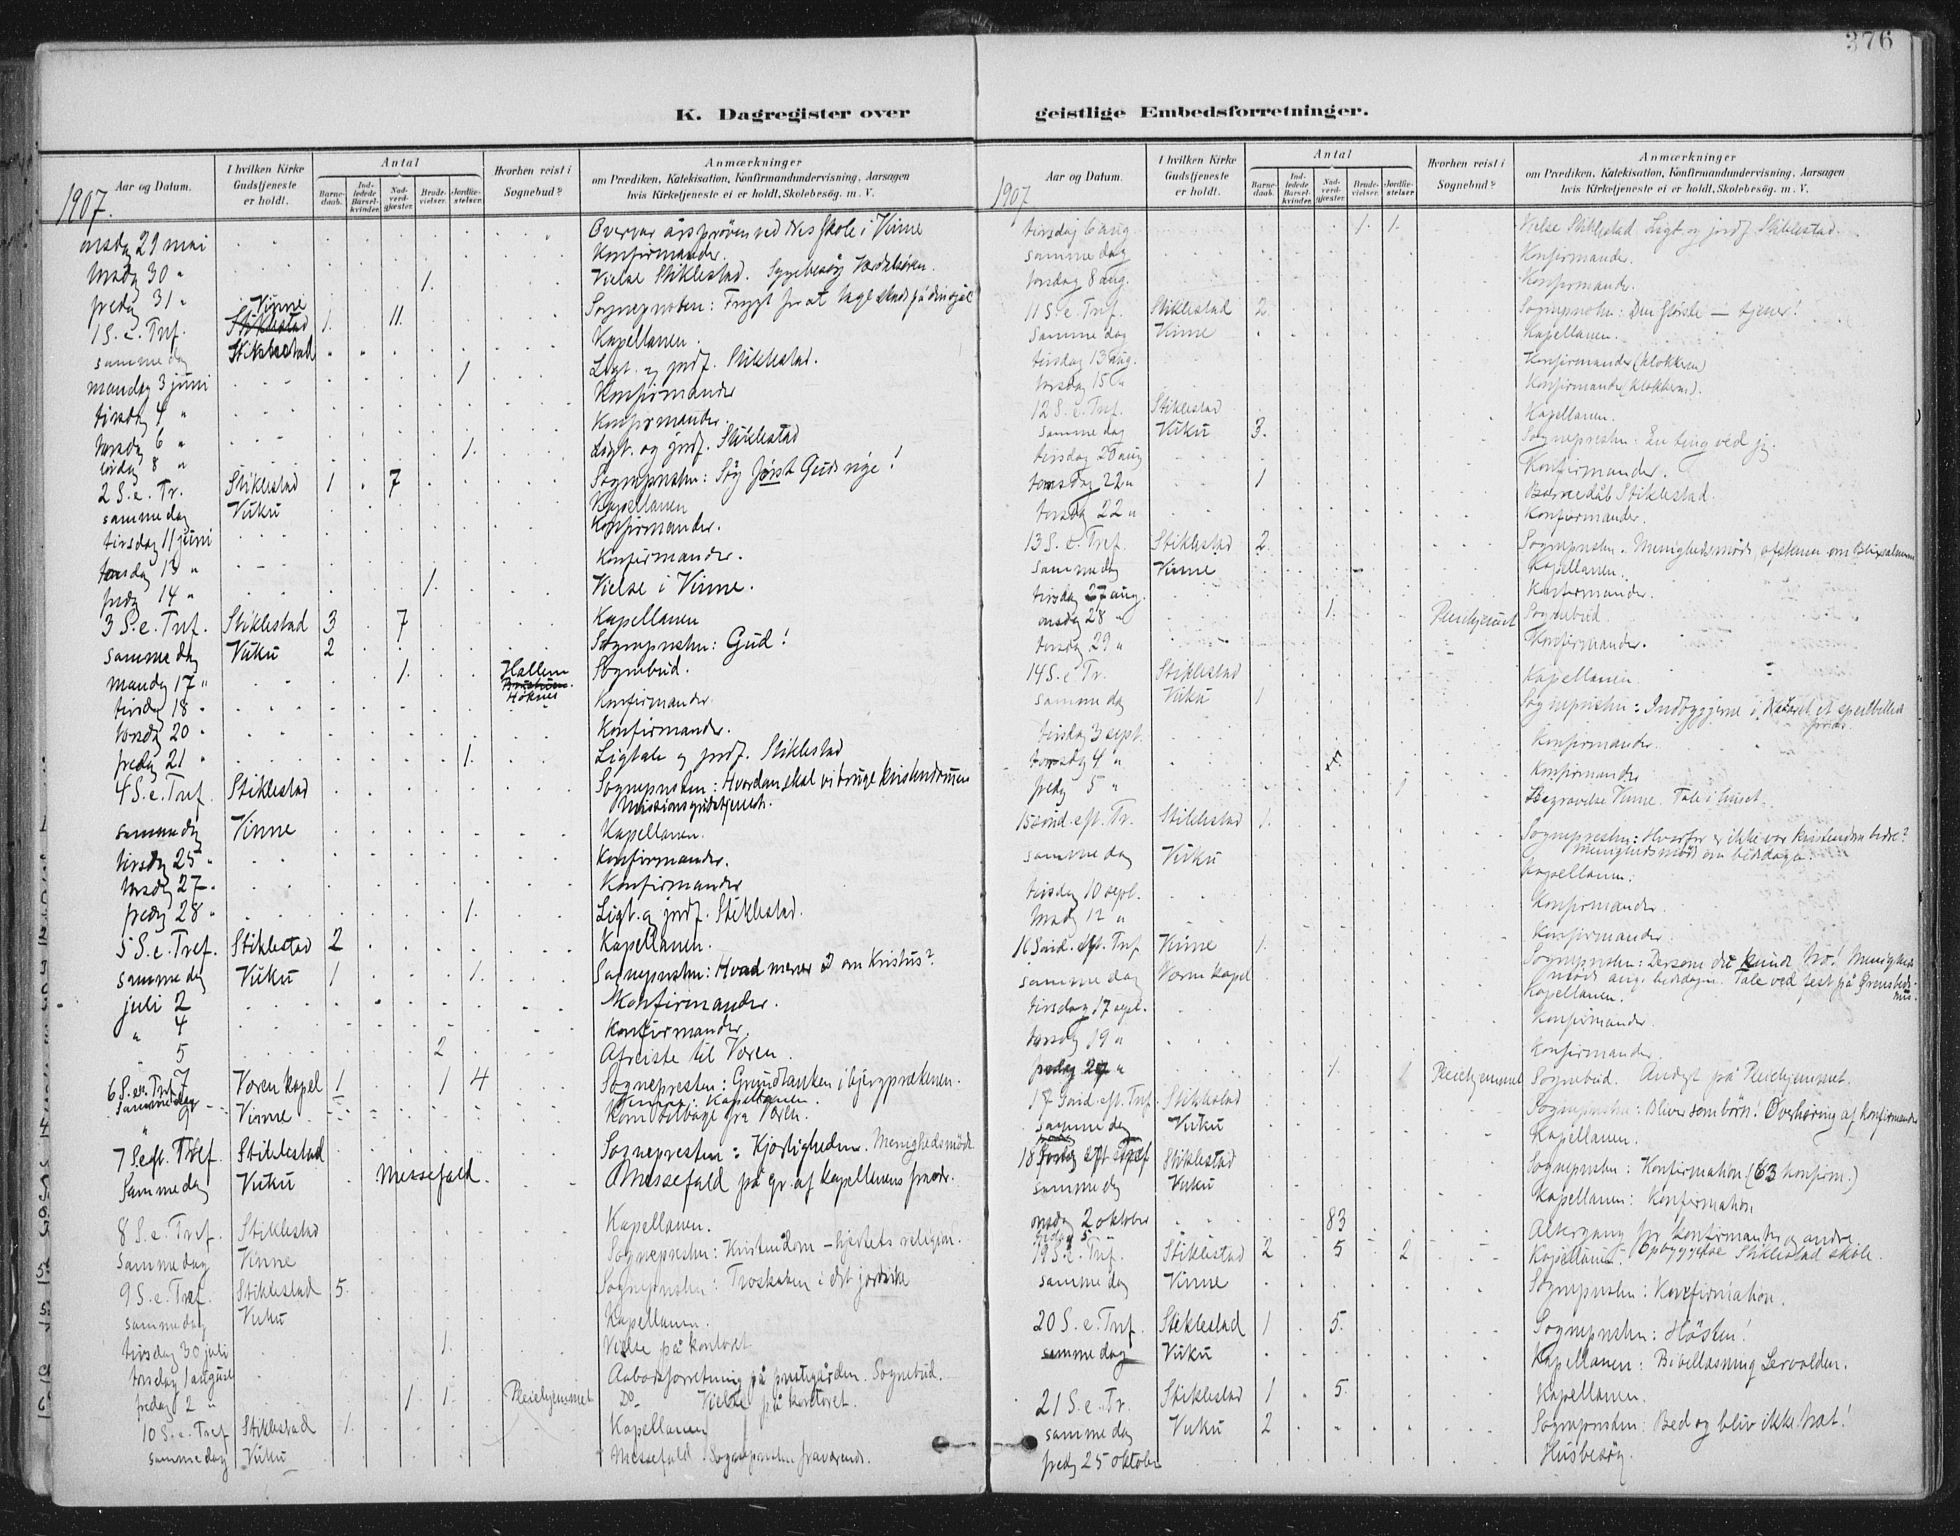 376
K. Dagregister over
geistlige Embedsforretninger.
Aar og Datum. I hvilken Kirke Gudstjeneste er holdt. Antal Barnedaab. Indledede Barselkvinder. Nadverdgjester. Brudevielser. Jordfæstelser. Hvorhen reist i Sognebud? Anmærkninger om Prædiken, Katekisation, Konfirmandundervisning, Aarsagen hvis Kirketjeneste ei er holdt, Skolebesøg. m. V.
1907.
onsdag 29 mai Overvar årsprøven ved Nes skole i Vinne
torsdag 30 " Konfirmander.
fredag 31 " 1. Vielse Stiklestad. Sygebesøg Værdalsøren.
1 S. e. Tref. Vinne Stiklestad 1. 11. Sognepresten: Frygt for at tage skade på din sjæl
samme dag Stiklestad Kapellanen.
mandag 3 juni 1 Ligt. og jordf. Stiklestad.
tirsdag 4 " Konfirmander
torsdag 6 " Konfirmander.
lørdag 8 " 1. Ligt. og jordf. Stiklestad
2 S. e. Tr. Stiklestad 1 7 Sognepresten: Søg først Guds rige!
samme dag Vuku Kapellanen
tirsdag 11 juni Konfirmander.
torsdag 13 " Konfirmander.
fredag 14 " 1. Vielse i Vinne.
3 S. e. Tref. Stiklestad 3 7 Kapellanen
samme dag Vuku 2 Sognepresten: Gud!
mandag 17 " 1. Hallem Høknes Sognebud.
tirsdag 18 " Konfirmander.
torsdag 20 " Konfirmander.
fredag 21 " 1. Ligtale og jordf. Stiklestad
4 S. e. Tref. Stiklestad Sognepresten: Hvordan skal vi bruge kristendommen
Missionsgudstjeneste.
samme dag Vinne Kapellanen.
tirsdag 25 " Konfirmander.
torsdag 27 " Konfirmander
fredag 28 " 1. Ligt. og jordf. Stiklestad.
5 S. e. Tref. Stiklestad 2 Kapellanen.
samme dag Vuku 1 1. Sognepresten: Hvad mener I om Kristus?
juli 2 Konfirmander.
" 4 Konfirmander.
" 5 2 Afreiste til Væren.
6 S. e. Tref. 7 Væren kapel 1 1 4 Sognepresten: Grundtanken i bjergprækenen.
samme dag Vinne Vinne: Kapellanen.
" 9 Kom tilbage fra Væren.
7 S. eft. Tref. Stiklestad Sognepresten: Kjærligheden. Menighedsmøde
samme dag Vuku Messefald. Messefald på gr. af kapellanens fravær.
8 S. e. Tref. Stiklestad Kapellanen.
samme dag Vinne Sognepresten: Kristendom – hjertets religion.
9 S. e. Tref. Stiklestad 5. Sognepresten: Troskaben i det jordiske
samme dag Vuku Kapellanen.
tirsdag 30 juli 1 Vielse på kontoret
torsdag 1 august Åabodsforretning på prestegården. Sognebud.
fredag 2 " 1 1. Pleiehjemmet Do Vielse på kontoret.
10 S. e. Tref Stiklestad 1. Kapellanen
samme dag Vuku Messefald Sognepresten fraværende.
Aar og Datum. I hvilken Kirke Gudstjeneste er holdt. Antal Barnedaab. Indledede Barselkvinder. Nadverdgjester. Brudevielser. Jordfæstelser. Hvorhen reist i Sognebud? Anmærkninger om Prædiken, Katekisation, Konfirmandundervisning, Aarsagen hvis Kirketjeneste ei er holdt, Skolebesøg. m. V.
1907
tirsdag 6 aug. 1. 1. Vielse Stiklestad Ligt. og jordf. Stiklestad.
samme dag Konfirmander.
torsdag 8 aug. Konfirmander.
11 S. e. Tref. Stiklestad 2. Sognepresten: Den største – tjener!
samme dag Vinne Kapellanen.
tirsdag 13 aug. Konfirmander (klokkeren)
torsdag 15 " Konfirmander (klokkeren).
12 S. e. Tref. Stiklestad Kapellanen.
samme dag Vuku 3. Sognepresten: En ting ved jeg.
tirsdag 20 aug Konfirmander.
torsdag 22 " 1 Barnedåb Stiklestad.
torsdag 22 " Konfirmander.
13 S. e. Tref. Stiklestad 2. Sognepresten. Menighedsmøde aftenen om Blixsalmerne
samme dag Vinne Kapellanen.
tirsdag 27 aug. Konfirmander.
onsdag 28 " 1. Pleiehjemmet Sognebud.
torsdag 29 " Konfirmander.
14 S. e. Tr. Stiklestad Kapellanen.
samme dag Vuku 1 Sognepresten: Indbyggerne i Nazaret et speilbilled
tirsdag 3 sept. Konfirmander.
torsdag 4 " Konfirmander
fredag 5 " 1 Begravelse Vinne. Tale i huset.
15 sønd. eft. Tr. Stiklestad 1. Sognepresten: Hvorfor er ikke vor kristendom bedre?
Menighedsmøde om bededagen.
samme dag Vuku Kapellanen.
tirsdag 10 sept. Konfirmander.
torsdag 12 " Konfirmander.
16 Sønd. eft. Tref Vinne 1. Sognepresten: Dersom du kunde tro! Menighedsmøde ang. bededagen. Tale ved fest på
samme dag Væren kapel Kapellanen.
tirsdag 17 sept. Konfirmander.
torsdag 19 " Konfirmander.
fredag 20 " 1. 1 Pleiehjemmet Sognebud. Andagt på Pleiehjemmet.
17 Sønd. eft. Tref. Stiklestad Sognepresten: Bliver som børn! Overhøring af konfirmander
samme dag Vuku Kapellanen.
18 Søndag eft Tref Stiklestad Sognepresten: Konfirmation (63 konfirm.)
samme dag Vuku Kapellanen: Konfirmation
onsdag 2 oktober 83 Altergang for konfirmander og andre.
19 S. e. Tref. Stiklestad 2 5 2 Kapellanen.
samme dag Vinne Sognepresten: Konfirmation.
20 S. e. Tref. Stiklestad 1 5. Sognepresten: Høsten!
samme dag Vuku Kapellanen: Bibellæsning Lervolden.
21 S. e. Tr. Stiklestad 1 5. Kapellanen.
samme dag Vuku 2 Sognepresten: Bed og bliv ikke træt!
fredag 25 oktober Husbesøg.